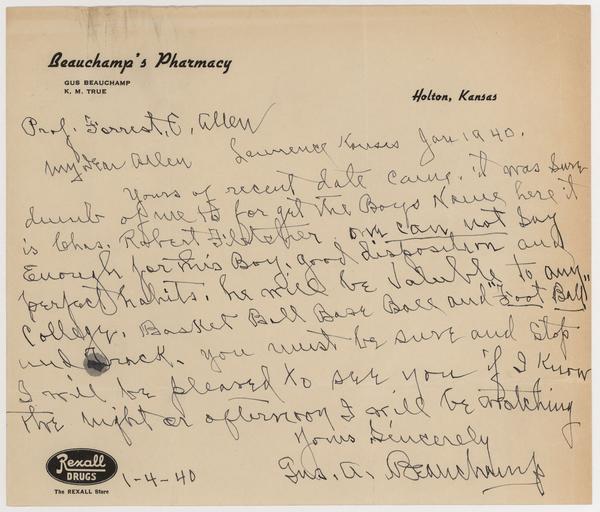 Beauchamp's Pharmacy
GUS BEAUCHAMP
K. M. TRUE
Holton, Kansas
Prof. Forrest, C, Allen
Lawrence Kansas Jan 1940.
My Dear Allen
Yours of recent date came. it was Sure
dumb of me to for get the Boys Name here it
is Chas. Robert Fletcher. one can not Say
Enough for this Boy. good disposition and
perfect habits. he will be Valuble to any
College. Basket Ball Base Ball and "Foot Ball"
and Track. you must be sure and Stop
I will be pleased to see you if I Know
the night or afternoon I will be watching
Yours Sincerely
Gus. A. Beauchamp
Rexall
DRUGS
The REXALL Store
1-4-40